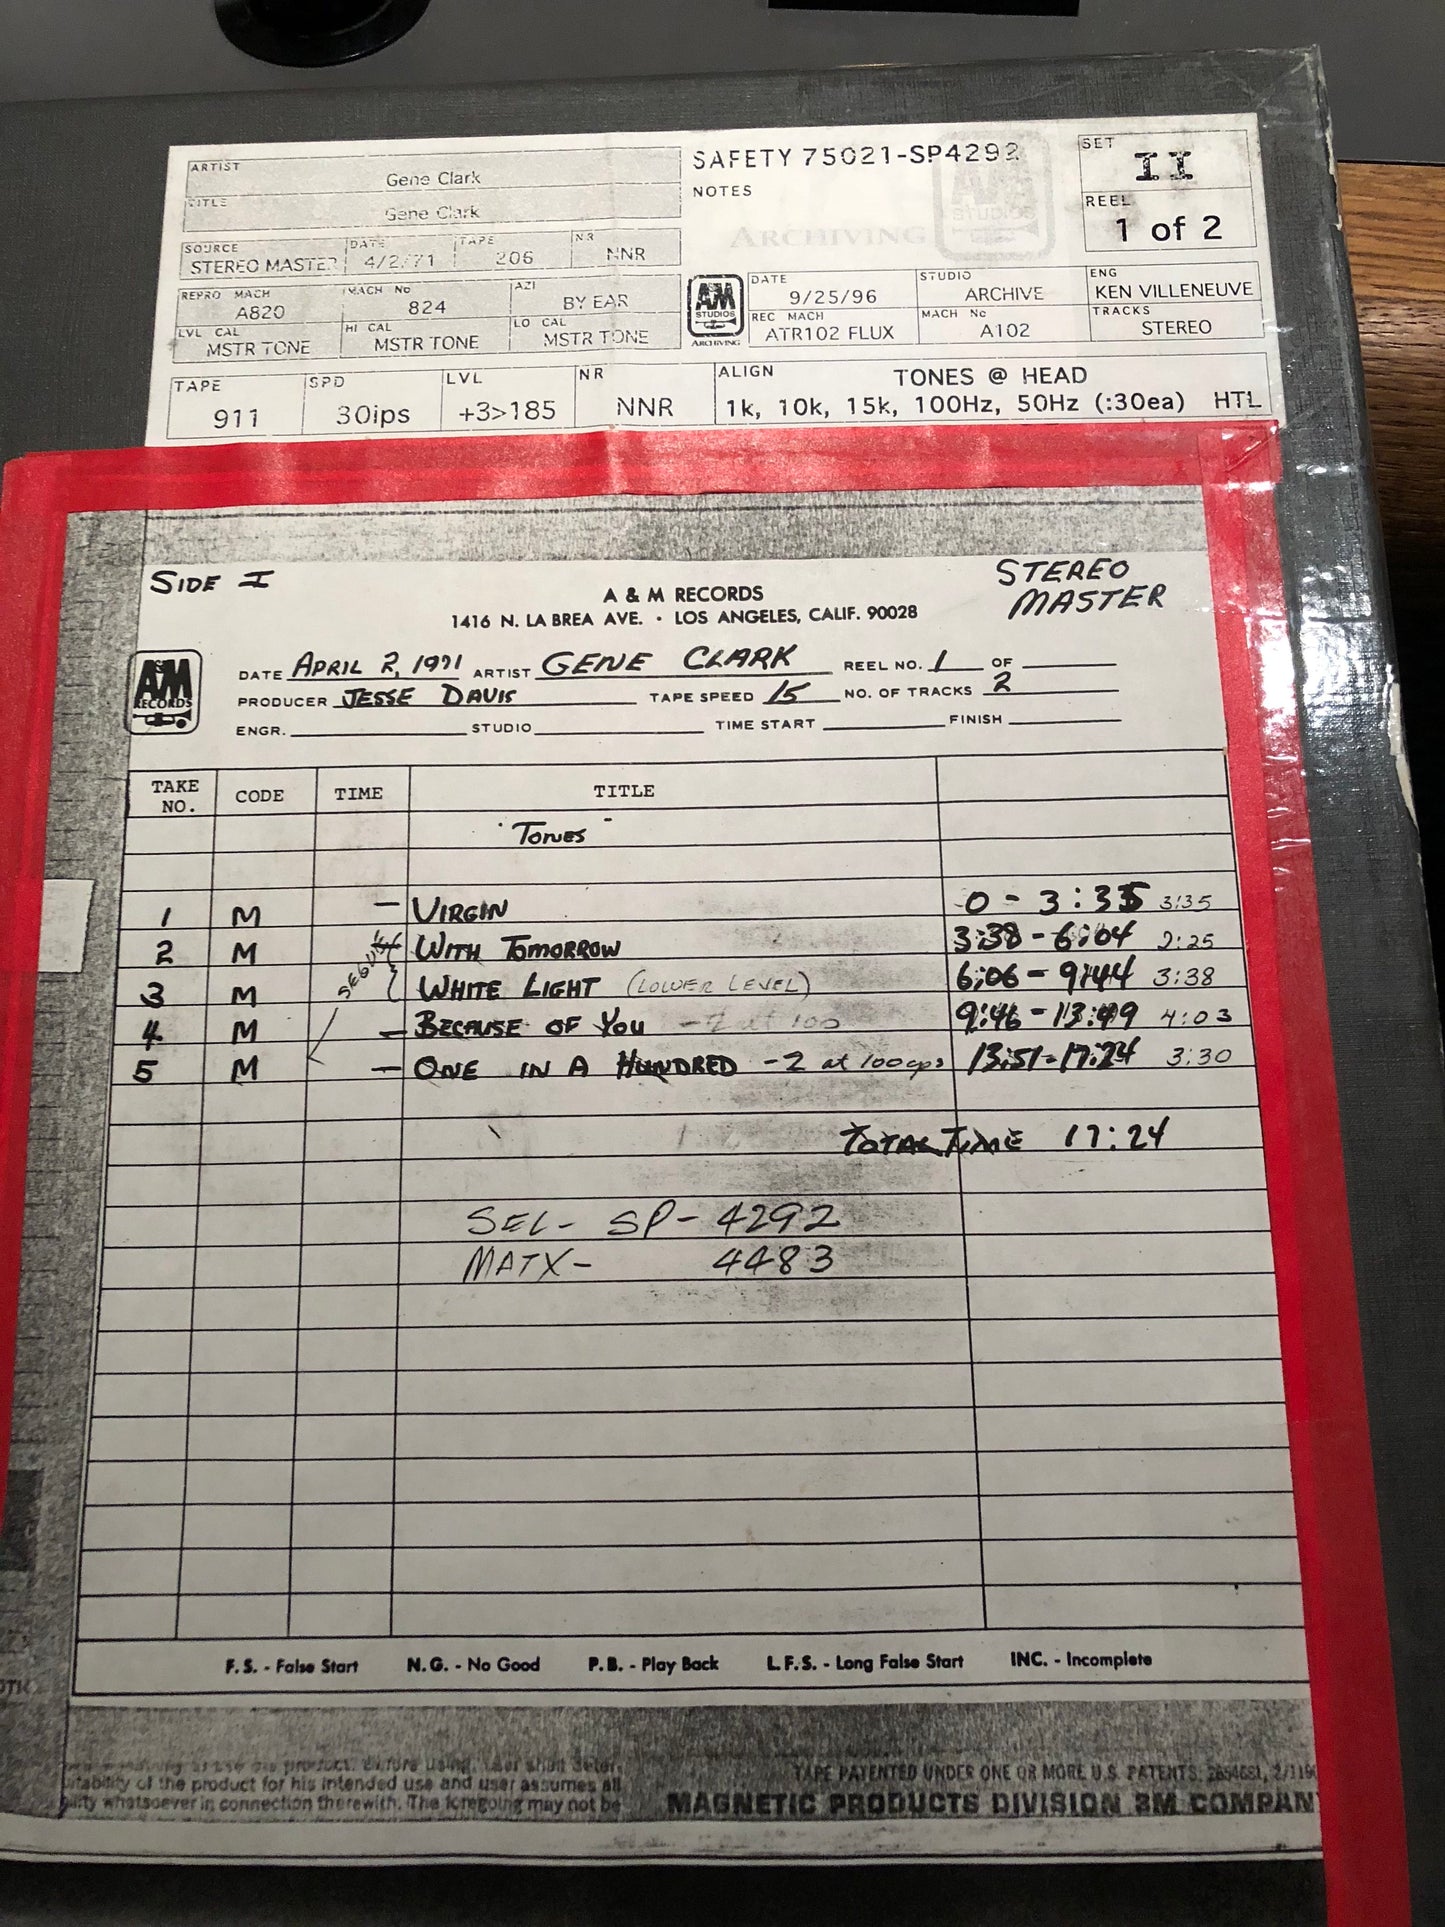 ARTIST Gene Clark
TITLE Gene Clark
SAFETY 75021-SP4292
NOTES
A&M STUDIOS
ARCHIVING
SET II
REEL 1 of 2
SOURCE STEREO MASTER DATE 4/2/71 TAPE 206 NR NNR
REPRO MACH A820 MACH No 824 AZI BY EAR
LVL CAL MSTR TONE HI CAL MSTR TONE LO CAL MSTR TONE
A&M STUDIOS ARCHIVING
DATE 9/25/96 STUDIO ARCHIVE ENG KEN VILLENEUVE
REC MACH ATR102 FLUX MACH No A102 TRACKS STEREO
TAPE 911 SPD 30ips LVL +3>185 NR NNR ALIGN TONES @ HEAD
1k, 10k, 15k, 100Hz, 50Hz (:30ea) HTL
SIDE I
STEREO
MASTER
A & M RECORDS
1416 N. LA BREA AVE. • LOS ANGELES, CALIF. 90028
A&M RECORDS
DATE APRIL 2, 1971 ARTIST GENE CLARK REEL NO. 1 OF
PRODUCER JESSE DAVIS TAPE SPEED 15 NO. OF TRACKS 2
ENGR. STUDIO TIME START FINISH
TAKE NO. CODE TIME TITLE
"TONES"
1 M – VIRGIN 0 - 3:35 3:35
2 M WITH TOMORROW 3:38 - 6:04 2:25
3 M WHITE LIGHT (LOWER LEVEL) 6:06 - 9:44 3:38
4 M – BECAUSE OF YOU -2 at 100 9:46 - 13:49 4:03
5 M – ONE IN A HUNDRED -2 at 100cps 13:51 - 17:24 3:30
TOTAL TIME 17:24
SEL- SP- 4292
MATX- 4483
F.S. - False Start N.G. - No Good P.B. - Play Back L.F.S. - Long False Start INC. - Incomplete
product. Before using, user shall deter-
itability of the product for his intended use and user assumes all
whatsoever in connection therewith. The foregoing may not be
TAPE PATENTED UNDER ONE OR MORE U.S. PATENTS:
MAGNETIC PRODUCTS DIVISION 3M COMPAN